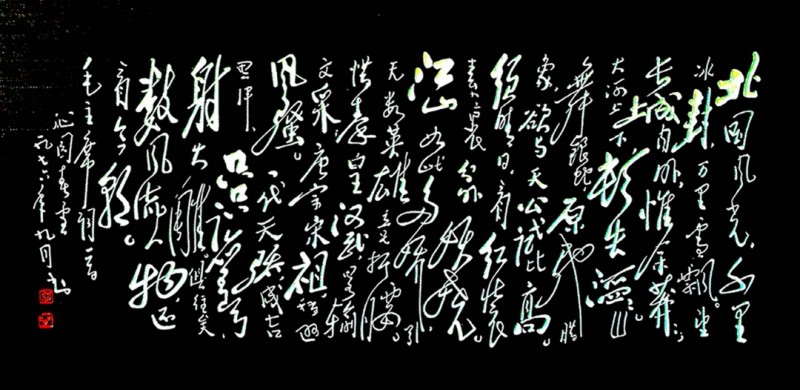 北国风光，千里
冰封，万里雪飘。望
长城内外，惟余莽莽；
大河上下，顿失滔滔。山
舞银蛇，原驰腊
象，欲与天公试比高。
须晴日，看红装
素裹，分外妖娆。
江山如此多娇，引
无数英雄竞折腰。
惜秦皇汉武，略输
文采；唐宗宋祖，稍逊
风骚。一代天骄，成吉
思汗，只识弯弓
射大雕。俱往矣，
数风流人物，还
看今朝。
毛主席词一首
沁园春雪
一九七六年九月